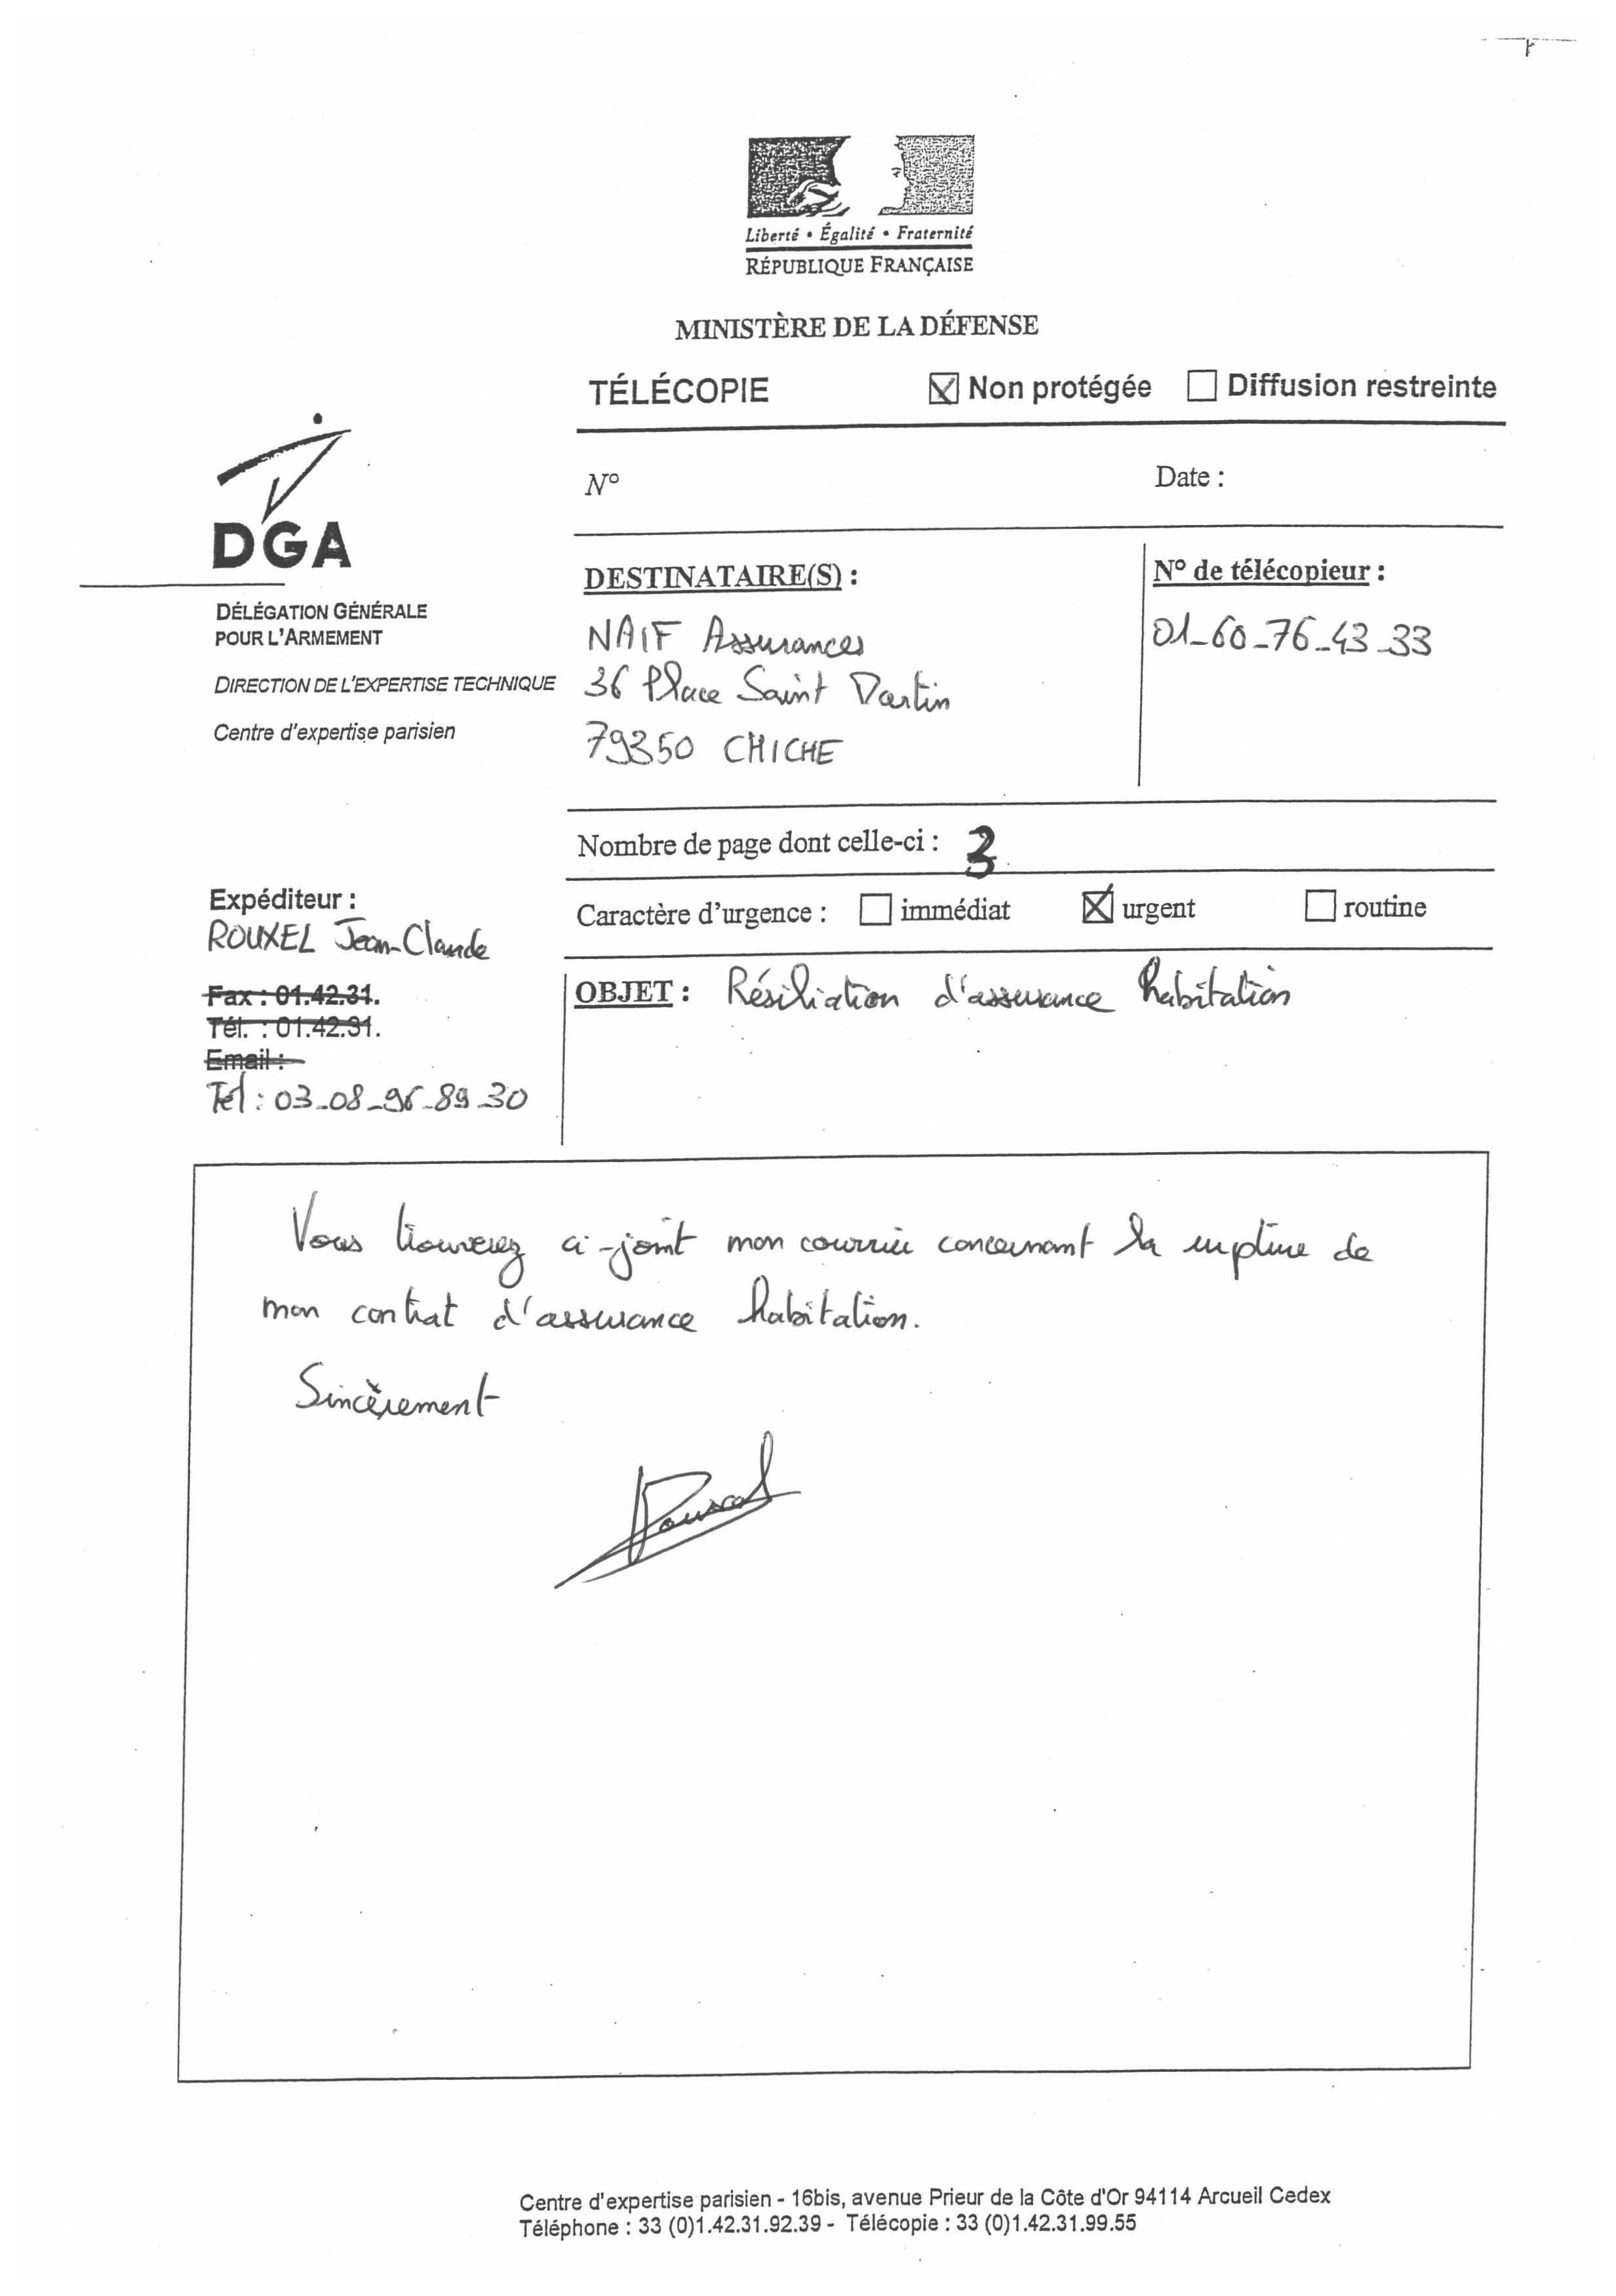 Liberté • Égalité • Fraternité
RÉPUBLIQUE FRANÇAISE
MINISTÈRE DE LA DÉFENSE
TÉLÉCOPIE Non protégée Diffusion restreinte
N° Date :
DGA
DÉLÉGATION GÉNÉRALE
POUR L'ARMEMENT
DIRECTION DE L'EXPERTISE TECHNIQUE
Centre d'expertise parisien
DESTINATAIRE(S) :
NAIF Assurances
36 Place Saint Martin
79350 CHICHE
N° de télécopieur :
01-60-76-43-33
Nombre de page dont celle-ci : 3
Caractère d'urgence : immédiat urgent routine
Expéditeur :
ROUXEL Jean-Claude
Fax : 01.42.31.
Tél. : 01.42.31.
Email :
Tél : 03-08-96-89-30
OBJET : Résiliation d'assurance habitation
Vous trouverez ci-joint mon courrier concernant la rupture de
mon contrat d'assurance habitation.
Sincèrement
Centre d'expertise parisien - 16bis, avenue Prieur de la Côte d'Or 94114 Arcueil Cedex
Téléphone : 33 (0)1.42.31.92.39 - Télécopie : 33 (0)1.42.31.99.55